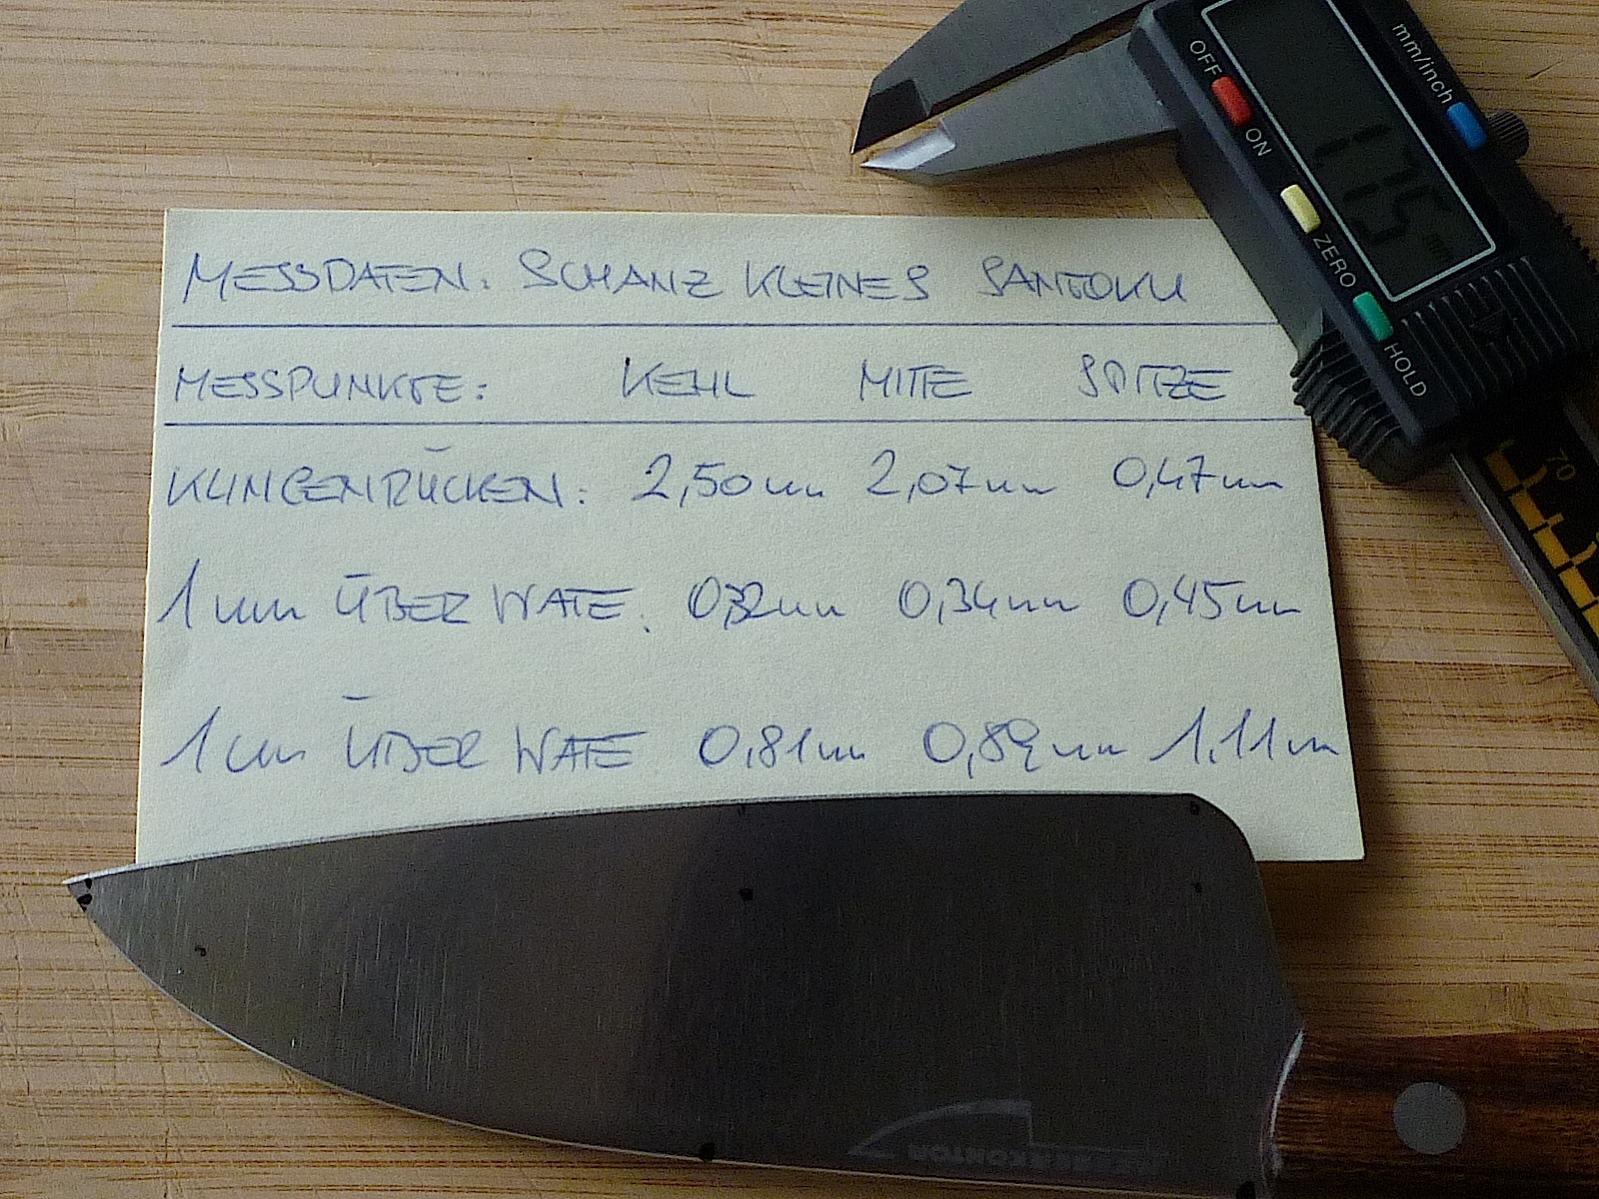 OFF
ON
mm/inch
ZERO
HOLD
70
MESSDATEN: SCHANZ KLEINES SANTOKU
MESSPUNKTE: KEHL MITTE SPITZE
KLINGENRÜCKEN: 2,50mm 2,07mm 0,47mm
1mm ÜBER WATE: 0,32mm 0,34mm 0,45mm
1cm ÜBER WATE 0,81mm 0,89mm 1,11mm